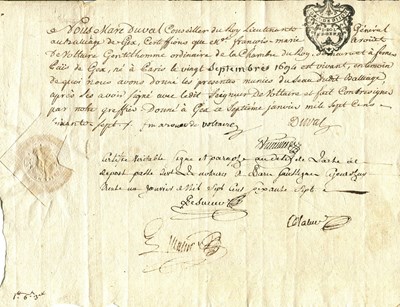 Nous Marc Duval Conseiller du Roy Lieutenant Général
au Bailliage de Gex, Certifions que Mre françois-marie arroüet
de Voltaire Gentilhomme ordinaire de la Chambre du Roy, demeurant à ferney
Païs de Gex, né à Paris le vingt Septembre 1694 est vivant, en temoin
de quoi nous avons donné les presentes munies du Sceau dudit Bailliage
après les avoir signé avec ledit Seigneur de Voltaire et fait Contresigner
par notre greffier Donné à Gex ce Septième janvier mil Sept Cens
soixante sept /. françois arouet de voltaire
Duval
Certifié veritable signé et paraphé au desir de l'acte de
depost passé devant les notaires à Paris soussignés
trente un janvier mil Sept cens soixante Sept
Lesueur